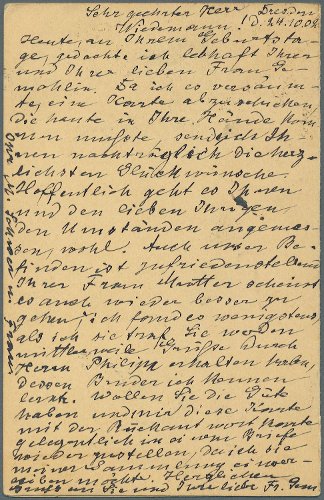 Dresden
Sehr geehrter Herr
D. 24.10.08.
Wiedemann,
Heute, an Ihrem Geburtsta-
ge, gedachte ich lebhaft Ihrer
und Ihrer lieben Frau Ge-
mahlin. Da ich es versäum-
te, eine Karte abzuschicken,
die heute in Ihre Hände kom-
men müsste send ich Ih-
nen nachträglich die herz-
lichsten Glückwünsche.
Hoffentlich geht es Ihnen
und den lieben Ihrigen
den Umständen angemes-
sen, wohl. Auch unser Be-
finden ist zufriedenstellend
Ihrer Frau Mutter scheint
es auch wieder besser zu
gehen, ich fand es wenigstens,
als ich sie traf. Sie werden
mittlerweile Grüße durch
Herrn Philipp erhalten haben,
dessen Bruder ich kennen
lernte. Wollen Sie die Güte
haben und mir diese Karte
mit der Rückantwort Karte
gelegentlich in einem Briefe
wieder zustellen, da ich sie
meiner Sammlung einver-
leiben möchte. Herzlichen
Gruß an Sie und Ihre liebe Fr. Gem
Ihr
und Frau